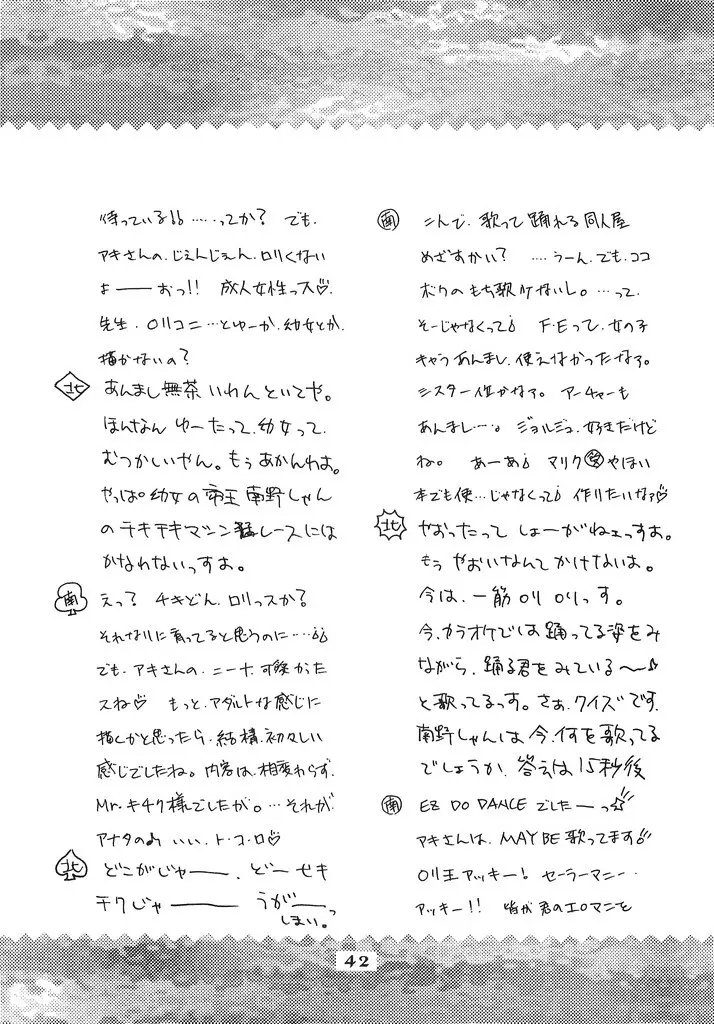 待っている!! ……ってか? でも、
アキさんの、じぇんじぇん、ロリくない
よ──おっ!! 成人女性っス♡
先生、ロリコニ…とゆーか、幼女とか、
描かないの?
北 あんまし無茶いわんといてや。
ほんなん ゆーたって、幼女って、
むつかしいやん。もぅあかんわぁ。
やっぱ幼女の帝王南野しゃん
のチキチキマシン猛レースには
かなわないっすよ。
南 えっ? チキどん、ロリっスか?
それなりに育ってると思うのに……
でも、アキさんの、ニーナ、可愛かた
スね♡ もっと、アダルトな感じに
描くかと思ったら、結構、初々しい
感じでしたね。内容は、相変わらず、
Mr.キチク様でしたが。…それが、
アナタのみ いい、ト・コ・ロ♡
北 どこがじゃ──、どーせキ
チクじゃ── うが──っ
しまい。
南 こんで、歌って踊れる同人屋
めざすかい? ……うーん、でも、ココ
ボクのもち歌がないし。…って、
そーじゃなくって♪ F・Eって、女の子
キャラあんまし、使えなかったなァ。
シスター位かなァ。アーチャーも
あんまし…。ジョルジュ、好きだけど
ね。あーあ♪ マリク受やほい
本でも使…じゃなくって♪ 作りたいなァ♡
北 やおったって しょーがねェっすよ。
もぅ やおいなんてかけないよ。
今は、一筋ロリロリっす。
今、カラオケでは踊ってる姿をみ
ながら、踊る君をみている〜♪
と歌ってるっす。さぁ、クイズです、
南野しゃんは、今、何を歌ってる
でしょうか、答えは15秒後
南 EZ DO DANCE でしたーっ☆
アキさんは、MAYBE歌ってます!!
ロリ王アッキー! セーラーマニー…
アッキー!! 皆が君のエロマニを
42